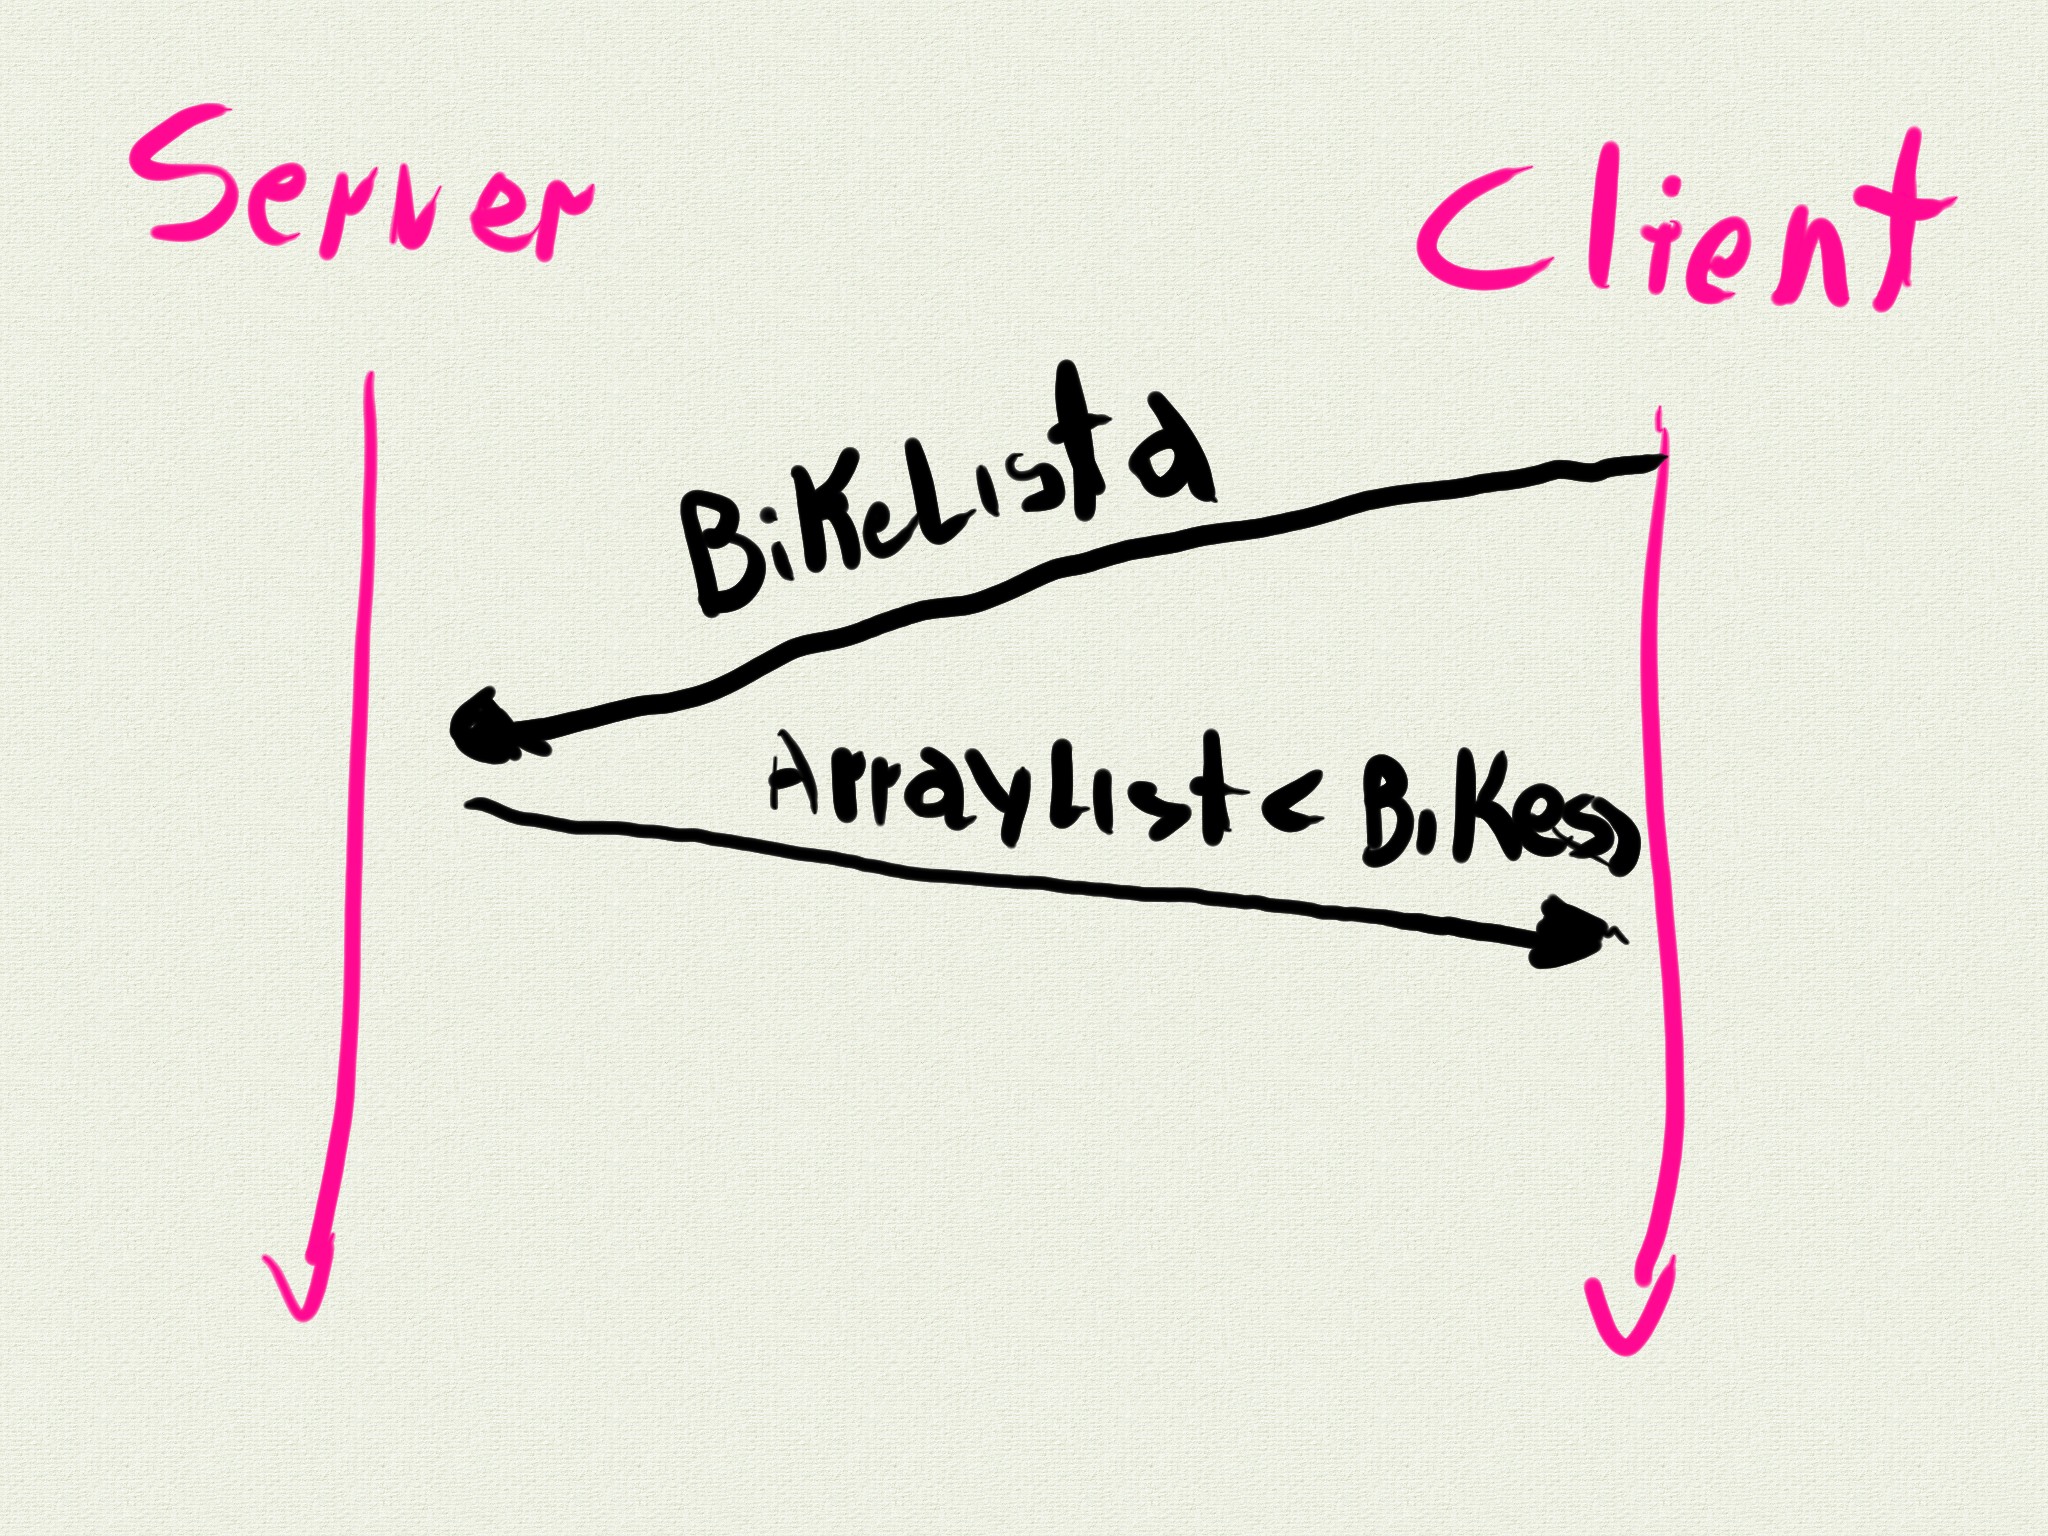 Server
Client
BikeLista
ArrayList<Bikes>